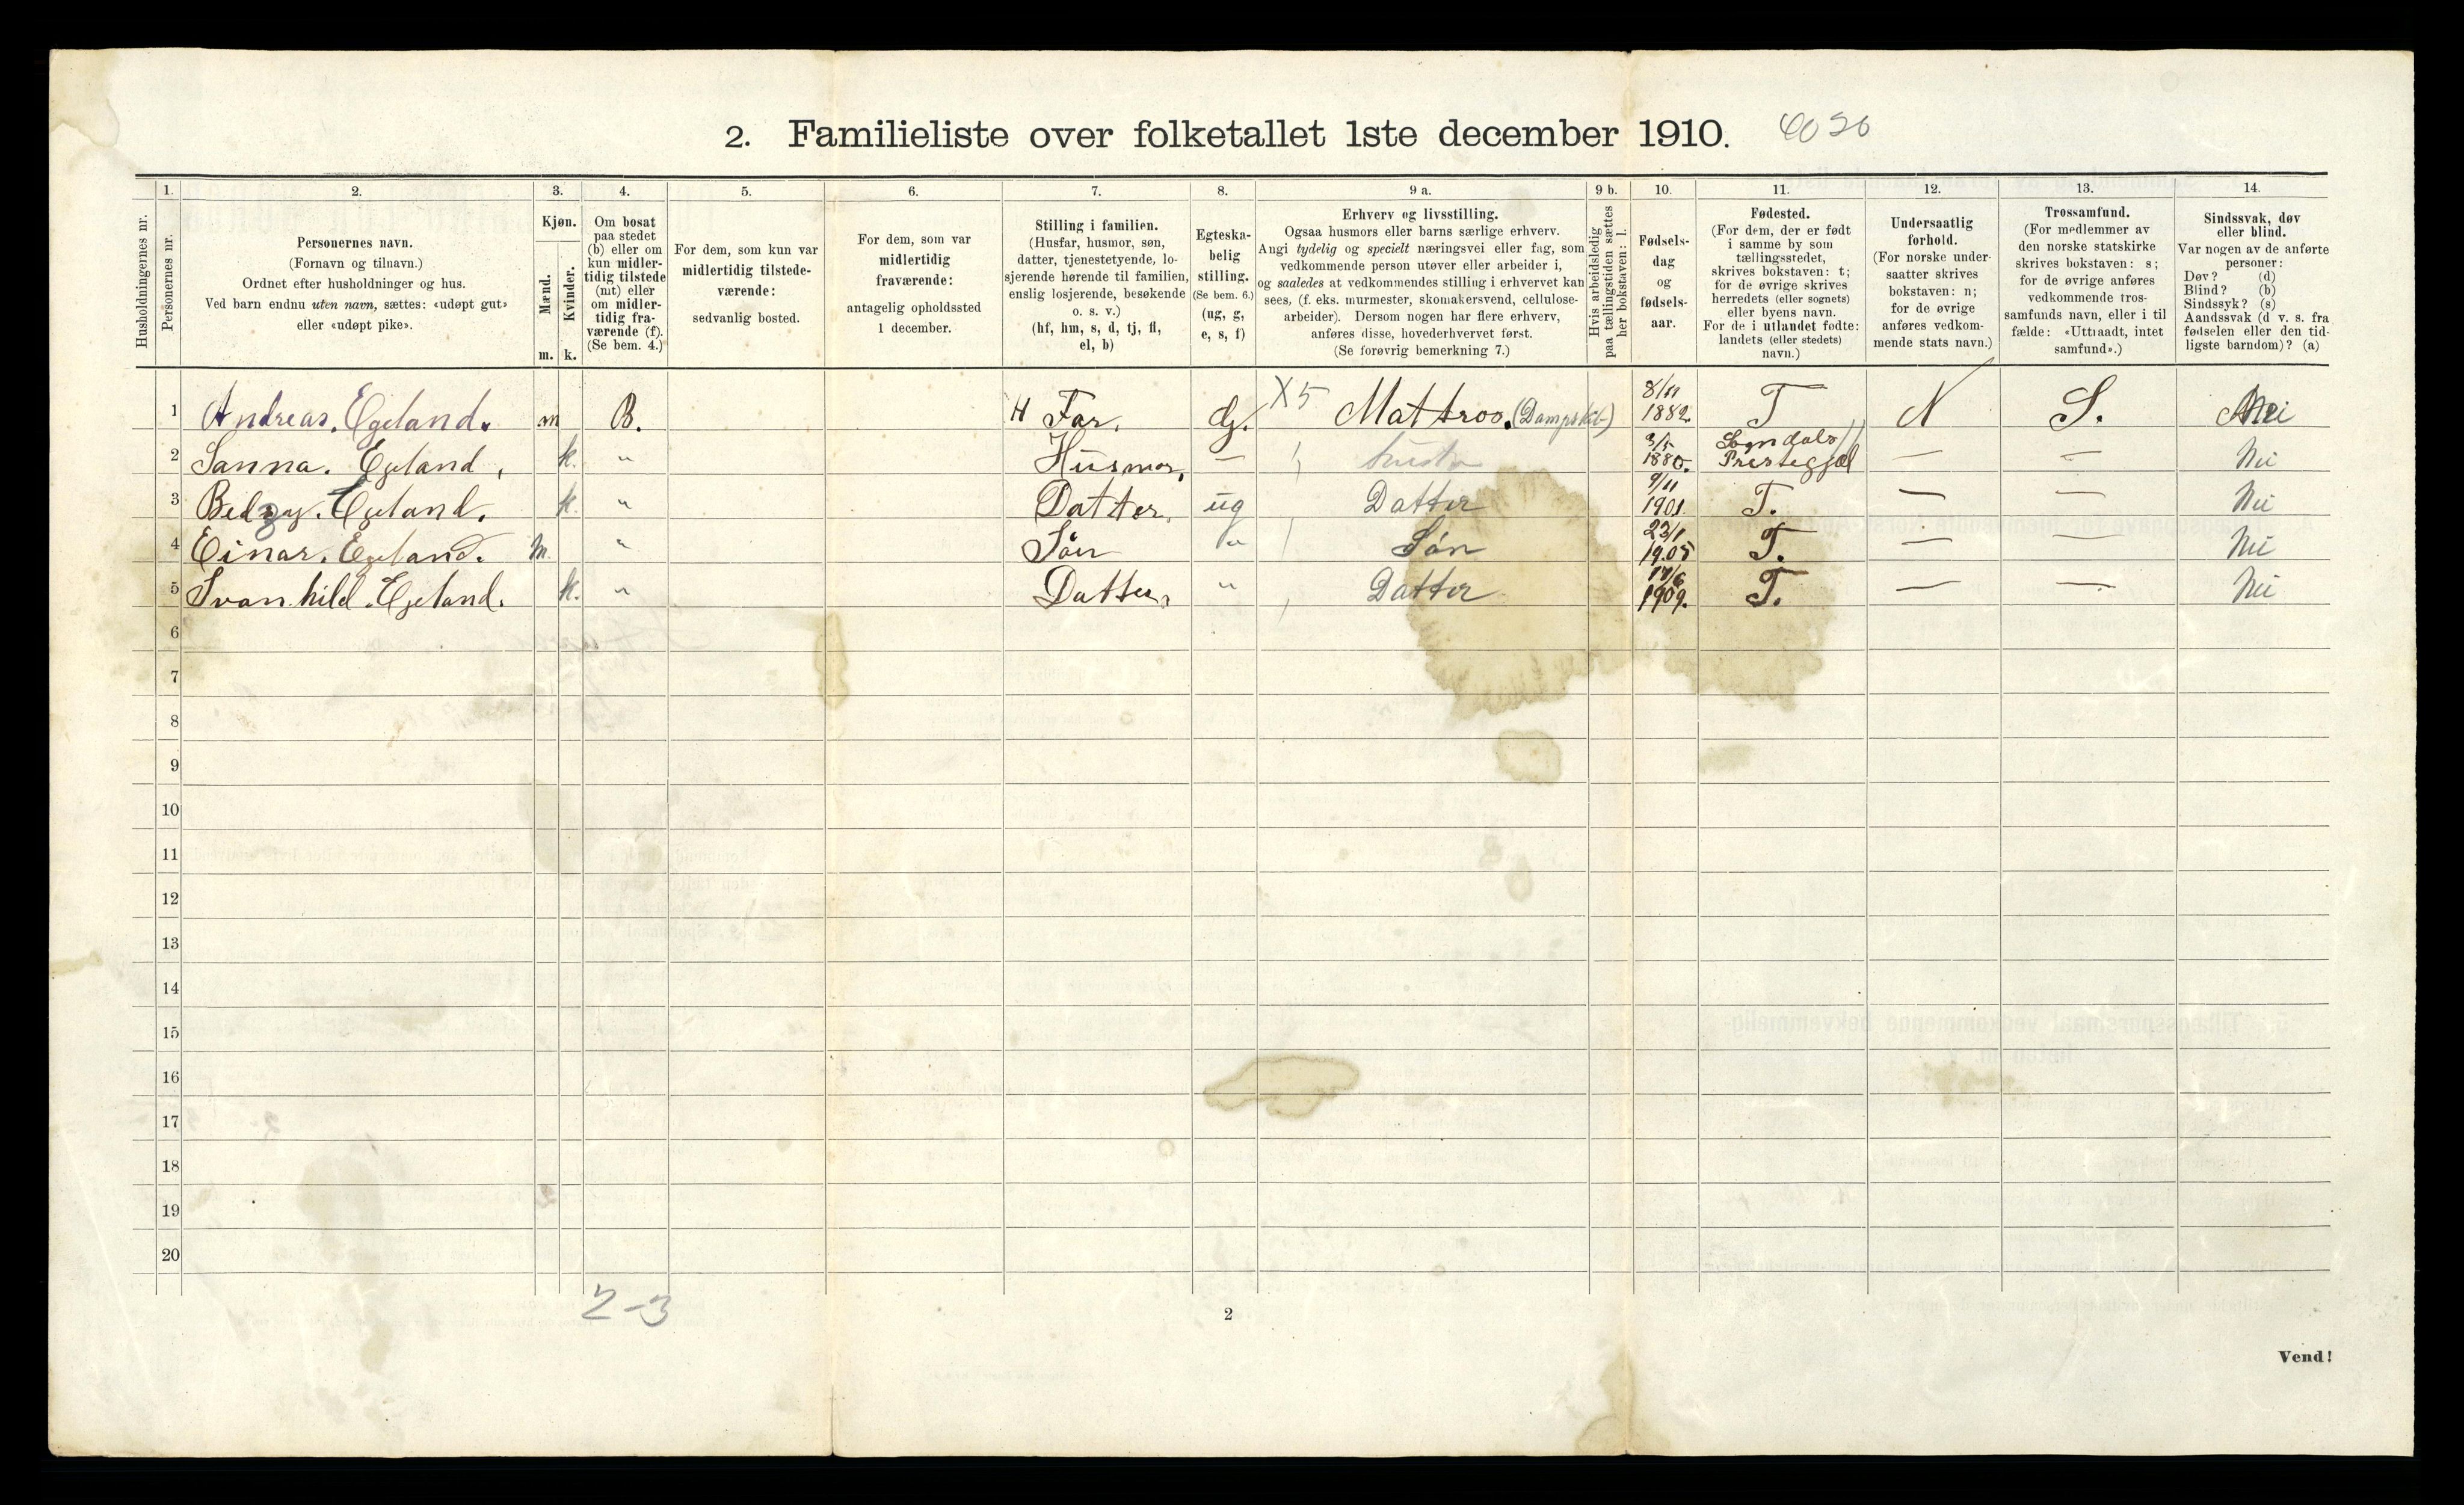 2. Familieliste over folketallet 1ste december 1910.
1. 2. 3. 4. 5. 6. 7. 8. 9 a. 9 b. 10. 11. 12. 13. 14.
Husholdningernes nr.
Personernes nr.
Personernes navn.
(Fornavn og tilnavn.)
Ordnet efter husholdninger og hus.
Ved barn endnu uten navn, sættes: «udøpt gut»
eller «udøpt pike».
Kjøn.
Mænd.
Kvinder.
m. k.
Om bosat
paa stedet
(b) eller om
kun midler-
tidig tilstede
(mt) eller
om midler-
tidig fra-
værende (f).
(Se bem. 4.)
For dem, som kun var
midlertidig tilstede-
værende:
sedvanlig bosted.
For dem, som var
midlertidig
fraværende:
antagelig opholdssted
1 december.
Stilling i familien.
(Husfar, husmor, søn,
datter, tjenestetyende, lo-
sjerende hørende til familien,
enslig losjerende, besøkende
o. s. v.)
(hf, hm, s, d, tj, fl,
el, b)
Egteska-
belig
stilling.
(Se bem. 6.)
(ug, g,
e, s, f)
Erhverv og livsstilling.
Ogsaa husmors eller barns særlige erhverv.
Angi tydelig og specielt næringsvei eller fag, som
vedkommende person utøver eller arbeider i,
og saaledes at vedkommendes stilling i erhvervet kan
sees, (f. eks. murmester, skomakersvend, cellulose-
arbeider). Dersom nogen har flere erhverv,
anføres disse, hovederhvervet først.
(Se forøvrig bemerkning 7.)
Hvis arbeidsledig
paa tællingstiden sættes
her bokstaven: l.
Fødsels-
dag
og
fødsels-
aar.
Fødested.
(For dem, der er født
i samme by som
tællingsstedet,
skrives bokstaven: t;
for de øvrige skrives
herredets (eller sognets)
eller byens navn.
For de i utlandet fødte:
landets (eller stedets)
navn.)
Undersaatlig
forhold.
(For norske under-
saatter skrives
bokstaven: n;
for de øvrige
anføres vedkom-
mende stats navn.)
Trossamfund.
(For medlemmer av
den norske statskirke
skrives bokstaven: s;
for de øvrige anføres
vedkommende tros-
samfunds navn, eller i til
fælde: «Uttraadt, intet
samfund».)
Sindssvak, døv
eller blind.
Var nogen av de anførte
personer:
Døv? (d)
Blind? (b)
Sindssyk? (s)
Aandssvak (d v. s. fra
fødselen eller den tid-
ligste barndom)? (a)
1 Andreas. Egeland. m B. H Far. g. X5 Mattros. (Dampskib) 8/11 1882. T N S. Nei
2 Sanna. Egeland, k. " Husmor, — 3/5 1880. Sogndals Prestegjel — — Nei
3 Egeland. k. " Datter, ug Datter 9/11 1901. T. — — Nei
4 Einar. Egeland. m. " Sön " Sön 23/1 1905 T. — — Nei
5 Svanhild. Egeland. k. " Datter, " Datter 17/6 1909. T. — — Nei
6
7
8
9
10
11
12
13
14
15
16
17
18
19
20
2-3
2
Vend!